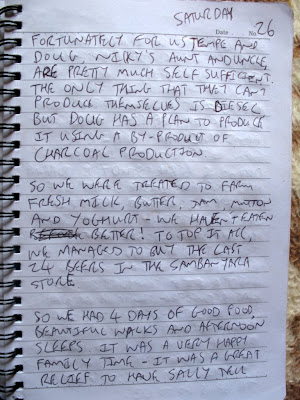 SATURDAY
Date No. 26
FORTUNATELY FOR US TEMPE AND
DOUG, NIKKY'S AUNT AND UNCLE,
ARE PRETTY MUCH SELF SUFFICIENT.
THE ONLY THING THAT THEY CAN'T
PRODUCE THEMSELVES IS DIESEL
BUT DOUG HAS A PLAN TO PRODUCE
IT USING A BY-PRODUCT OF
CHARCOAL PRODUCTION
SO WE WERE TREATED TO FARM
FRESH MILK, BUTTER, JAM, MUTTON
AND YOGHURT - WE HAVEN'T EATEN
BETTER! TO TOP IT ALL,
WE MANAGED TO BUY THE LAST
24 BEERS IN THE SAMBANYARA
STORE
SO WE HAD 4 DAYS OF GOOD FOOD,
BEAUTIFUL WALKS AND AFTERNOON
SLEEPS. IT WAS A VERY HAPPY
FAMILY TIME - IT WAS A GREAT
RELIEF TO HAVE SALLY TELL